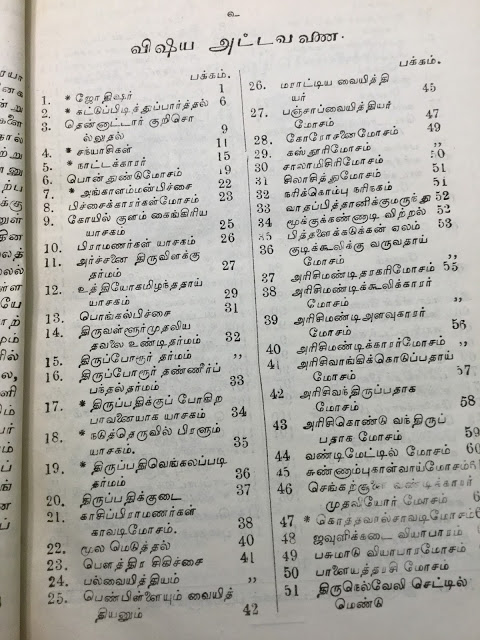 ௨
விஷய அட்டவணை.
பக்கம்.
1. * ஜோதிஷர் 1
2. * கட்டுப்பிடித்துப்பார்த்தல் 6
3. தென்னாட்டார் குறிசொ
ல்லுதல் 9
4. * சந்யாசிகள் 11
5. * நாட்டக்காரர் 15
6. பொன் துண்டுமோசம் 19
7. * அங்காளம்மன்பிச்சை 22
8. பிச்சைக்காரர்கள்மோசம் 23
9. கோயில் குளம் கைங்கிரிய
யாசகம் 25
10. பிராமணர்கள் யாசகம் 26
11. அர்ச்சனை திருவிளக்கு
தர்மம் 27
12. உத்தியோகமிழந்ததாய்
யாசகம் 29
13. பொங்கல்பிச்சை 31
14. திருவள்ளூர்முதலிய
தவலை உண்டிதர்மம் 32
15. திருப்போரூர் தர்மம் ,,
16. திருப்போரூர் தண்ணீர்ப்
பந்தல்தர்மம் 33
17. * திருப்பதிக்குப் போகிற
பாவனையாக யாசகம் 34
18. * நடுத்தெருவில் பிரளும்
யாசகம். 35
19. * திருப்பதிவெங்கலப்படி
தர்மம் 36
20. திருப்பதிக்குடை 37
21. காசிப்பிராமணர்கள்
காவடிமோசம். 38
22. மூல மெடுத்தல் 40
23. பௌத்திர சிகிச்சை 41
24. பல்வைத்தியம் ,,
25. பெண்பிள்ளையும் வையித்
தியனும் 42
பக்கம்.
26. மராட்டிய வையித்தி
யர் 45
27. பஞ்சாப்வையித்தியர்
மோசம் 47
28. கோரோசனைமோசம் 49
29. கஸ்தூரிமோசம் ,,
30. சாலாமிசிரிமோசம் 50
31 சிலாசித்துமோசம் 51
32. நரிக்கொம்பு நரிநகம் 51
33. வாதப்பித்தானிக்குமருந்து 52
34 மூக்குக்கண்ணடி விற்றல் 52
35 பித்தளைக்கடுக்கன் ஏலம் 53
36 குடிக்கூலிக்கு வருவதாய்
மோசம் ,,
37 அரிசிமண்டிதரகரிமோசம் 55
38 அரிசிமண்டிக்கூலிக்காரர்
மோசம் ,,
39 அரிசிமண்டிஅளவுகாரர்
மோசம் 56
40 அரிசிமண்டிக்காரர்மோசம் ,,
41 அரிசிவாங்கிக்கொடுப்பதாய்
மோசம் 57
42 அரிசிவந்திருப்பதாக
மோசம் 58
43 அரிசிகொண்டு வந்திருப்
பதாக மோசம் 59
44 வண்டிமேட்டில் மோசம் 60
45 சுண்ணாம்புகாள்வாய்மோசம்
46 செங்கற்சூளை வண்டிக்காரர்
முதலியோர் மோசம்
47 * கொத்தவால்சாவடிமோசம்
48 ஜவுளிக்கடை வியாபாரம்
49 பசுமாடு வியாபாரமோசம்
50 பாளையத்தாசி மோசம்
51 திருநெல்வேலி செட்டில்
மெண்டு